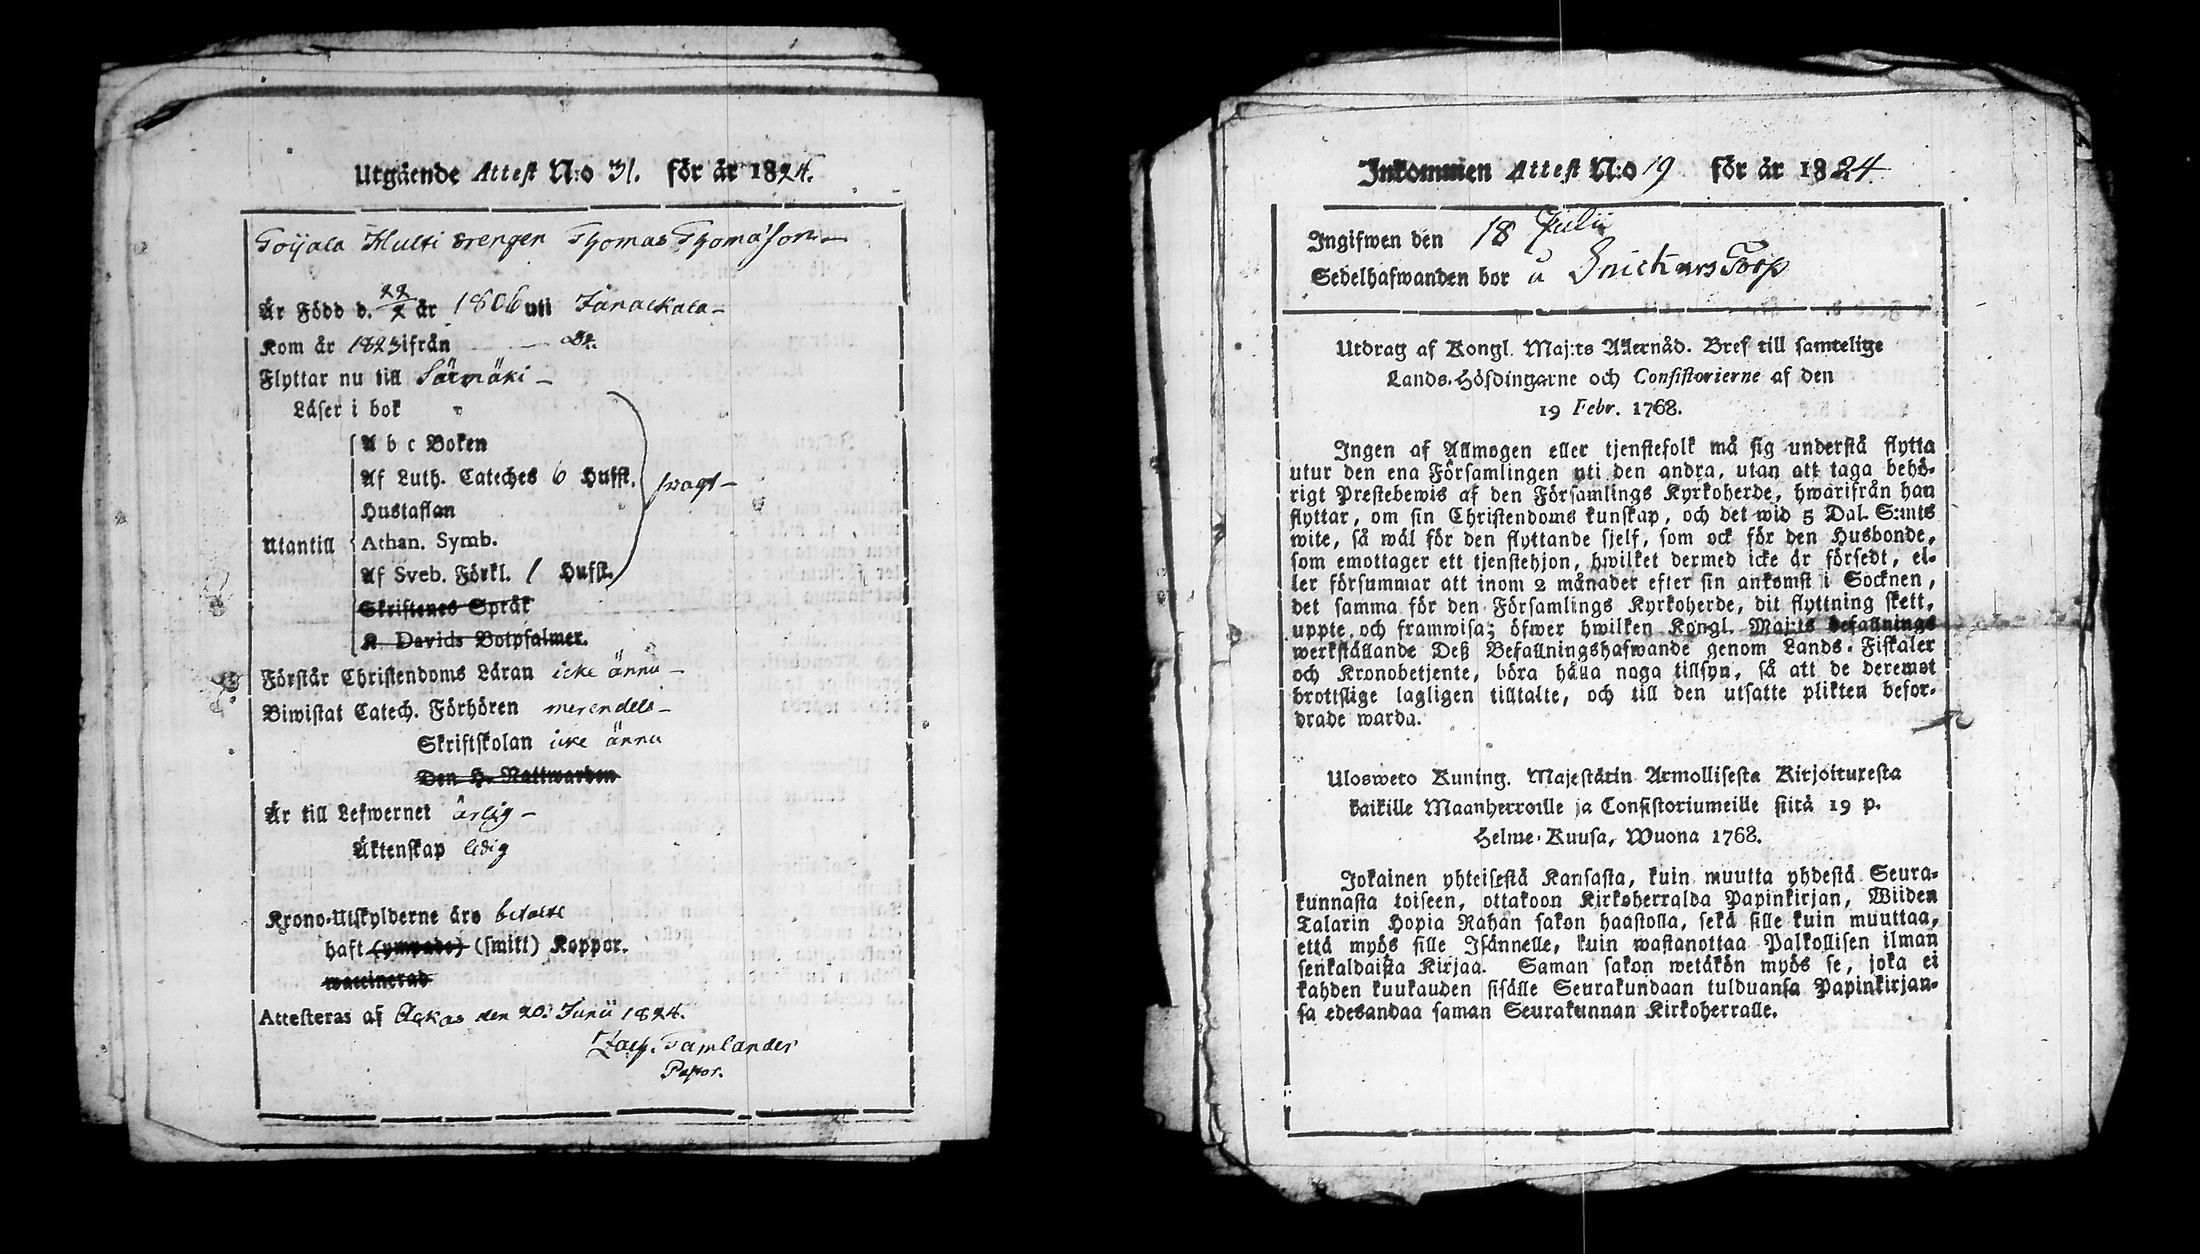 Utgående Attest N:o 31. för år 1824.
Toijala Hulti drengen Thomas Thomasson
Är Född d. 22/2 år 1806 uti Janackala
Kom år 1823 ifrån D:o
Flyttar nu till Särmäki
Läser i bok
A b c Boken
Af Luth. Cateches 6 Hufst.
Hustaflan
Utantill
Athan. Symb.
Af Sveb. Förkl. 1 Hufst.
swagt
Skriftenes Språk
K. Davids Botpsalmer.
Förstår Christendoms Läran icke ännu
Biwistat Catech. Förhören merendels
Skriftskolan icke ännu
Den H. Nattwarden
Är till Lefwernet ärlig
Äktenskap ledig
Krono-Utskylderne äro betalte
haft (ympade) (smitt) Koppor.
waccinerad
Attesteras af Ackas den 20. Junii 1824.
Zach. Tamlander
Pastor.
Inkommen Attest N:o 19 för år 1824.
Ingifwen den 18 Julii
Sedelhafwanden bor i Snickars Torp
Utdrag af Kongl. Maj:ts Allernåd. Bref till samtelige
Lands-Höfdingarne och Consistorierne af den
19 Febr. 1768.
Ingen af Allmogen eller tjenstefolk må sig understå flytta
utur den ena Församlingen uti den andra, utan att taga behö-
rigt Prestebewis af den Församlings Kyrkoherde, hwarifrån han
flyttar, om sin Christendoms kunskap, och det wid 5 Dal. S:mts
wite, så wäl för den flyttande sjelf, som ock för den Husbonde,
som emottager ett tjenstehjon, hwilket dermed icke är försedt, el-
ler försummar att inom 2 månader efter sin ankomst i Socknen,
det samma för den Församlings Kyrkoherde, dit flyttning skett,
uppte och framwisa; öfwer hwilken Kongl. Maj:ts befallnings
werkställande Deß Befallningshafwande genom Lands-Fiskaler
och Kronobetjente, böra hålla noga tillsyn, så att de deremot
brottslige lagligen tilltalte, och till den utsatte plikten befor-
drade warda.
Uloswetо Kuning. Majestätin Armollisesta Kirjoituxesta
kaikille Maanherroille ja Consistoriumeille siitä 19 p.
Helme-Kuusa, Wuona 1768.
Jokainen yhteisestä Kansasta, kuin muutta yhdestä Seura-
kunnasta toiseen, ottakoon Kirkoherralda Papinkirjan, Wiiden
Talarin Hopia Rahan sakon haastolla, sekä sille kuin muuttaa,
että myös sille Isännelle, kuin wastanottaa Palkollisen ilman
senkaldaista Kirjaa. Saman sakon wetäkön myös se, joka ei
kahden kuukauden sisälle Seurakundaan tulduansa Papinkirjan-
sa edesandaa saman Seurakunnan Kirkoherralle.